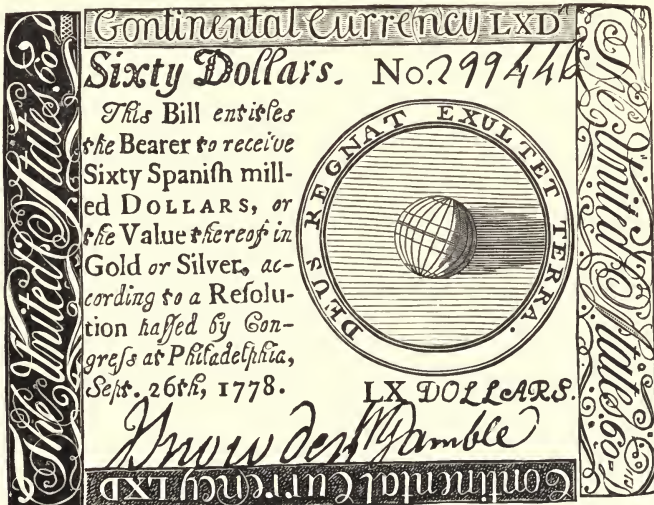 Continental Currency LXD
Sixty Dollars. No. 299446
This Bill entitles
the Bearer to receive
Sixty Spaniſh mill-
ed DOLLARS, or
the Value thereof in
Gold or Silver, ac-
cording to a Reſolu-
tion paſſed by Con-
greſs at Philadelphia,
Sept. 26th, 1778.
DEUS REGNAT EXULTET TERRA.
LX DOLLARS.
Snowden Gamble
Continental Currency LXD
The United States. 60
The United States 60